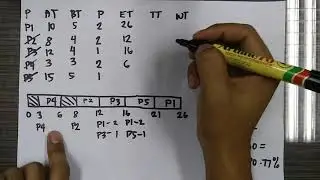 P AT BT P ET TT NT
P1 10 5 2 26
P2 8 4 2 12
P3 12 4 1 16
P4 3 3 2 6
P5 15 5 1
P4 P2 P3 P5 P1
0 3 6 8 12 16 21 26
P4 P2 P1-2 P1-2
P3-1 P5-1
0.77%